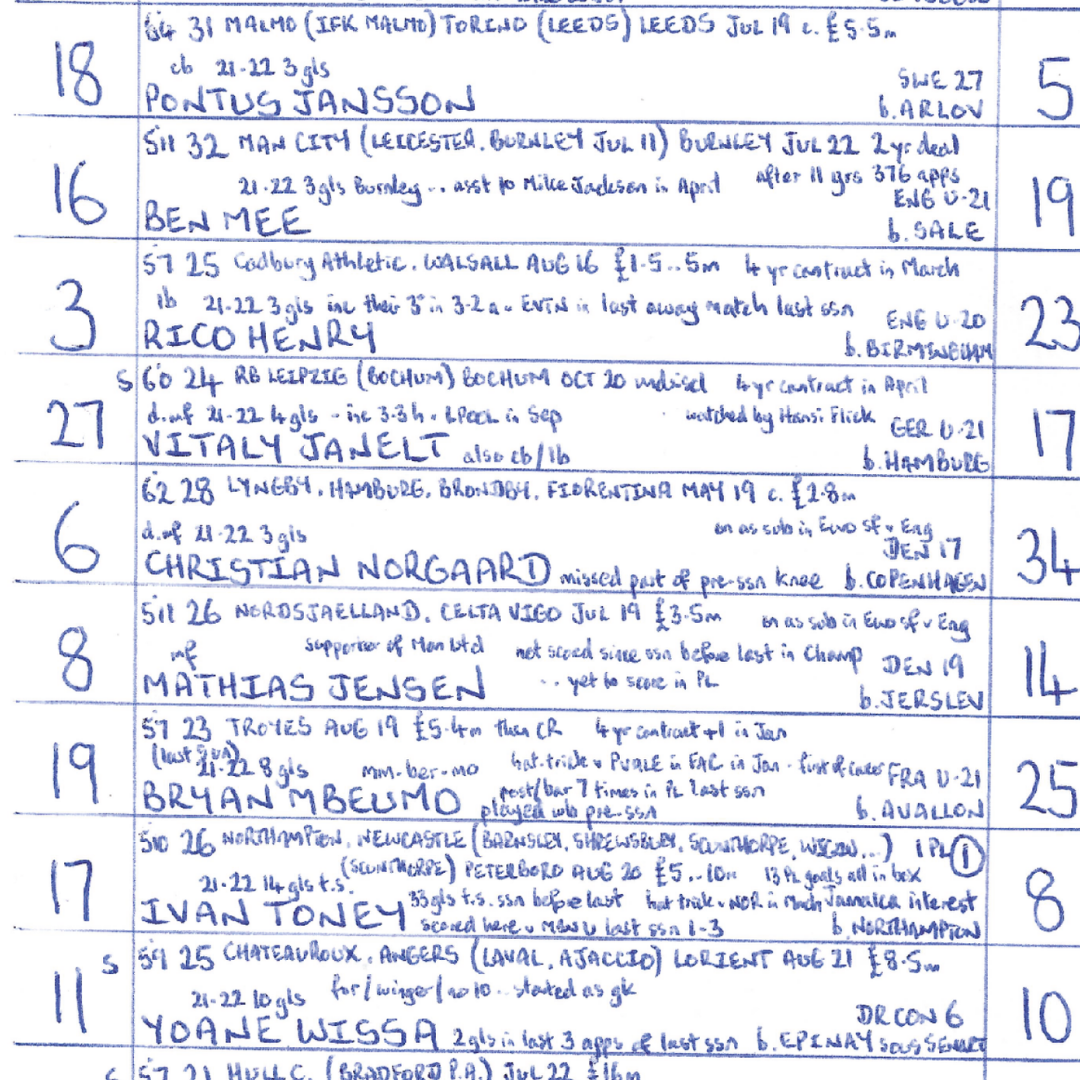 64 31 MALMO (IFK MALMO) TORINO (LEEDS) LEEDS JUL 19 c. £5.5m
18 cb 21-22 3gls SWE 27 5
PONTUS JANSSON b.ARLOV
511 32 MAN CITY (LEICESTER. BURNLEY JUL 11) BURNLEY JUL 22 2yr deal
16 21-22 3gls Burnley .. asst to Mike Jackson in April after 11 yrs 376 apps
ENG U-21 19
BEN MEE b.SALE
57 25 Cadbury Athletic. WALSALL AUG 16 £1.5..5m 4 yr contract in March
3 lb 21-22 3gls inc their 3° in 3-2 a v EVTN in last away match last ssn
ENG U-20 23
RICO HENRY b.BIRMINGHAM
S 60 24 RB LEIPZIG (BOCHUM) BOCHUM OCT 20 undiscl 4yr contract in April
27 d.mf 21-22 4gls - inc 3-3 h v LPOOL in Sep watched by Hansi Flick GER U-21 17
VITALY JANELT also cb/lb b.HAMBURG
62 28 LYNGBY. HAMBURG. BRONDBY. FIORENTINA MAY 19 c. £2.8m
6 d.mf 21-22 3gls on as sub in Euro sf v Eng
DEN 17 34
CHRISTIAN NORGAARD missed part of pre-ssn knee b.COPENHAGEN
511 26 NORDSJAELLAND. CELTA VIGO JUL 19 £3.5m on as sub in Euro sf v Eng
8 mf supporter of Man Utd not scored since ssn before last in Champ DEN 19 14
MATHIAS JENSEN .. yet to score in PL b.JERSLEV
57 23 TROYES AUG 19 £5.4m then CR 4 yr contract +1 in Jan
19 21-22 8gls mm-ber-mo hat-trick v PVALE in FAC in Jan - first of career FRA U-21 25
BRYAN MBEUMO post/bar 7 times in PL last ssn
played wb pre-ssn b.AVALLON
510 26 NORTHAMPTON. NEWCASTLE (BARNSLEY, SHREWSBURY, SCUNTHORPE, WIGAN...) 1 PL 1
(SCUNTHORPE) PETERBORO AUG 20 £5...10m 13 PL goals all in box
17 21-22 14gls t.s. 8
IVAN TONEY 33gls t.s. ssn before last hat trick v NOR in March Jamaica interest
scored here v MAN U last ssn 1-3 b.NORTHAMPTON
S 59 25 CHATEAUROUX. ANGERS (LAVAL, AJACCIO) LORIENT AUG 21 £8.5m
11 21-22 10gls for/winger/no10 .. started as gk DR CON 6 10
YOANE WISSA 2gls in last 3 apps of last ssn b.EPINAY SOUS SENART
S 57 21 HULL C. (BRADFORD P.A.) JUL 22 £16m